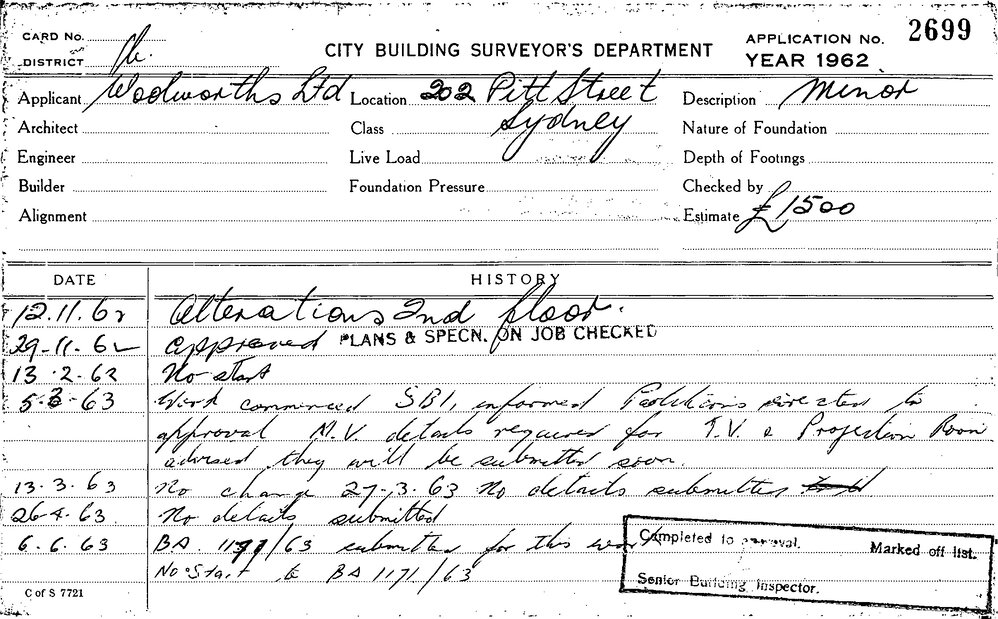 CARD No.
DISTRICT
CITY BUILDING SURVEYOR'S DEPARTMENT
APPLICATION No. 2699
YEAR 1962
Applicant Woolworths Ltd Location 202 Pitt Street Description Minor
Sydney
Architect Class Nature of Foundation
Engineer Live Load Depth of Footings
Builder Foundation Pressure Checked by
Alignment Estimate £1,500
DATE HISTORY
12.11.62 Alterations 2nd floor.
29-11.62 Approved PLANS & SPECN. ON JOB CHECKED
13.2.63 No start
5-3-63 Work commenced SBI, informed directed to
approval M.V. details required for T.V. & Projection Room
advised they will be submitted soon.
13.3.63 No change 27-3.63 No details submitted
26.4.63 No details submitted
6.6.63 BA. 1171/63 submitted for this work
No Start to BA 1171/63
Completed to approval. Marked off list.
Senior Building Inspector.
C of S 7721